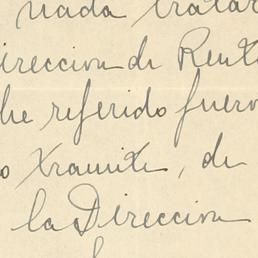 nada tratar
ireccion de Rent
he referido fuero
o tramite, de
la Direccion